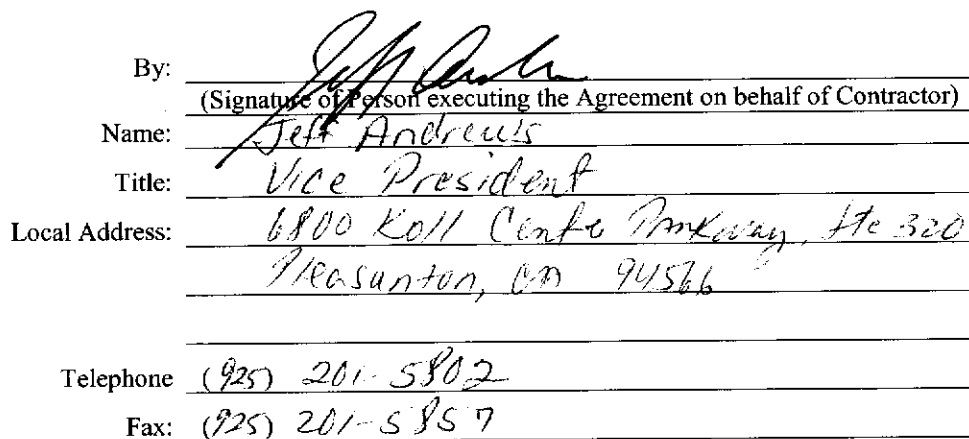 By: Jeff Andrews
(Signature of Person executing the Agreement on behalf of Contractor)
Name: Jeff Andrews
Title: Vice President
Local Address: 6800 Koll Center Parkway, Ste 320
Pleasanton, CA 94566
Telephone (925) 201-5802
Fax: (925) 201-5857